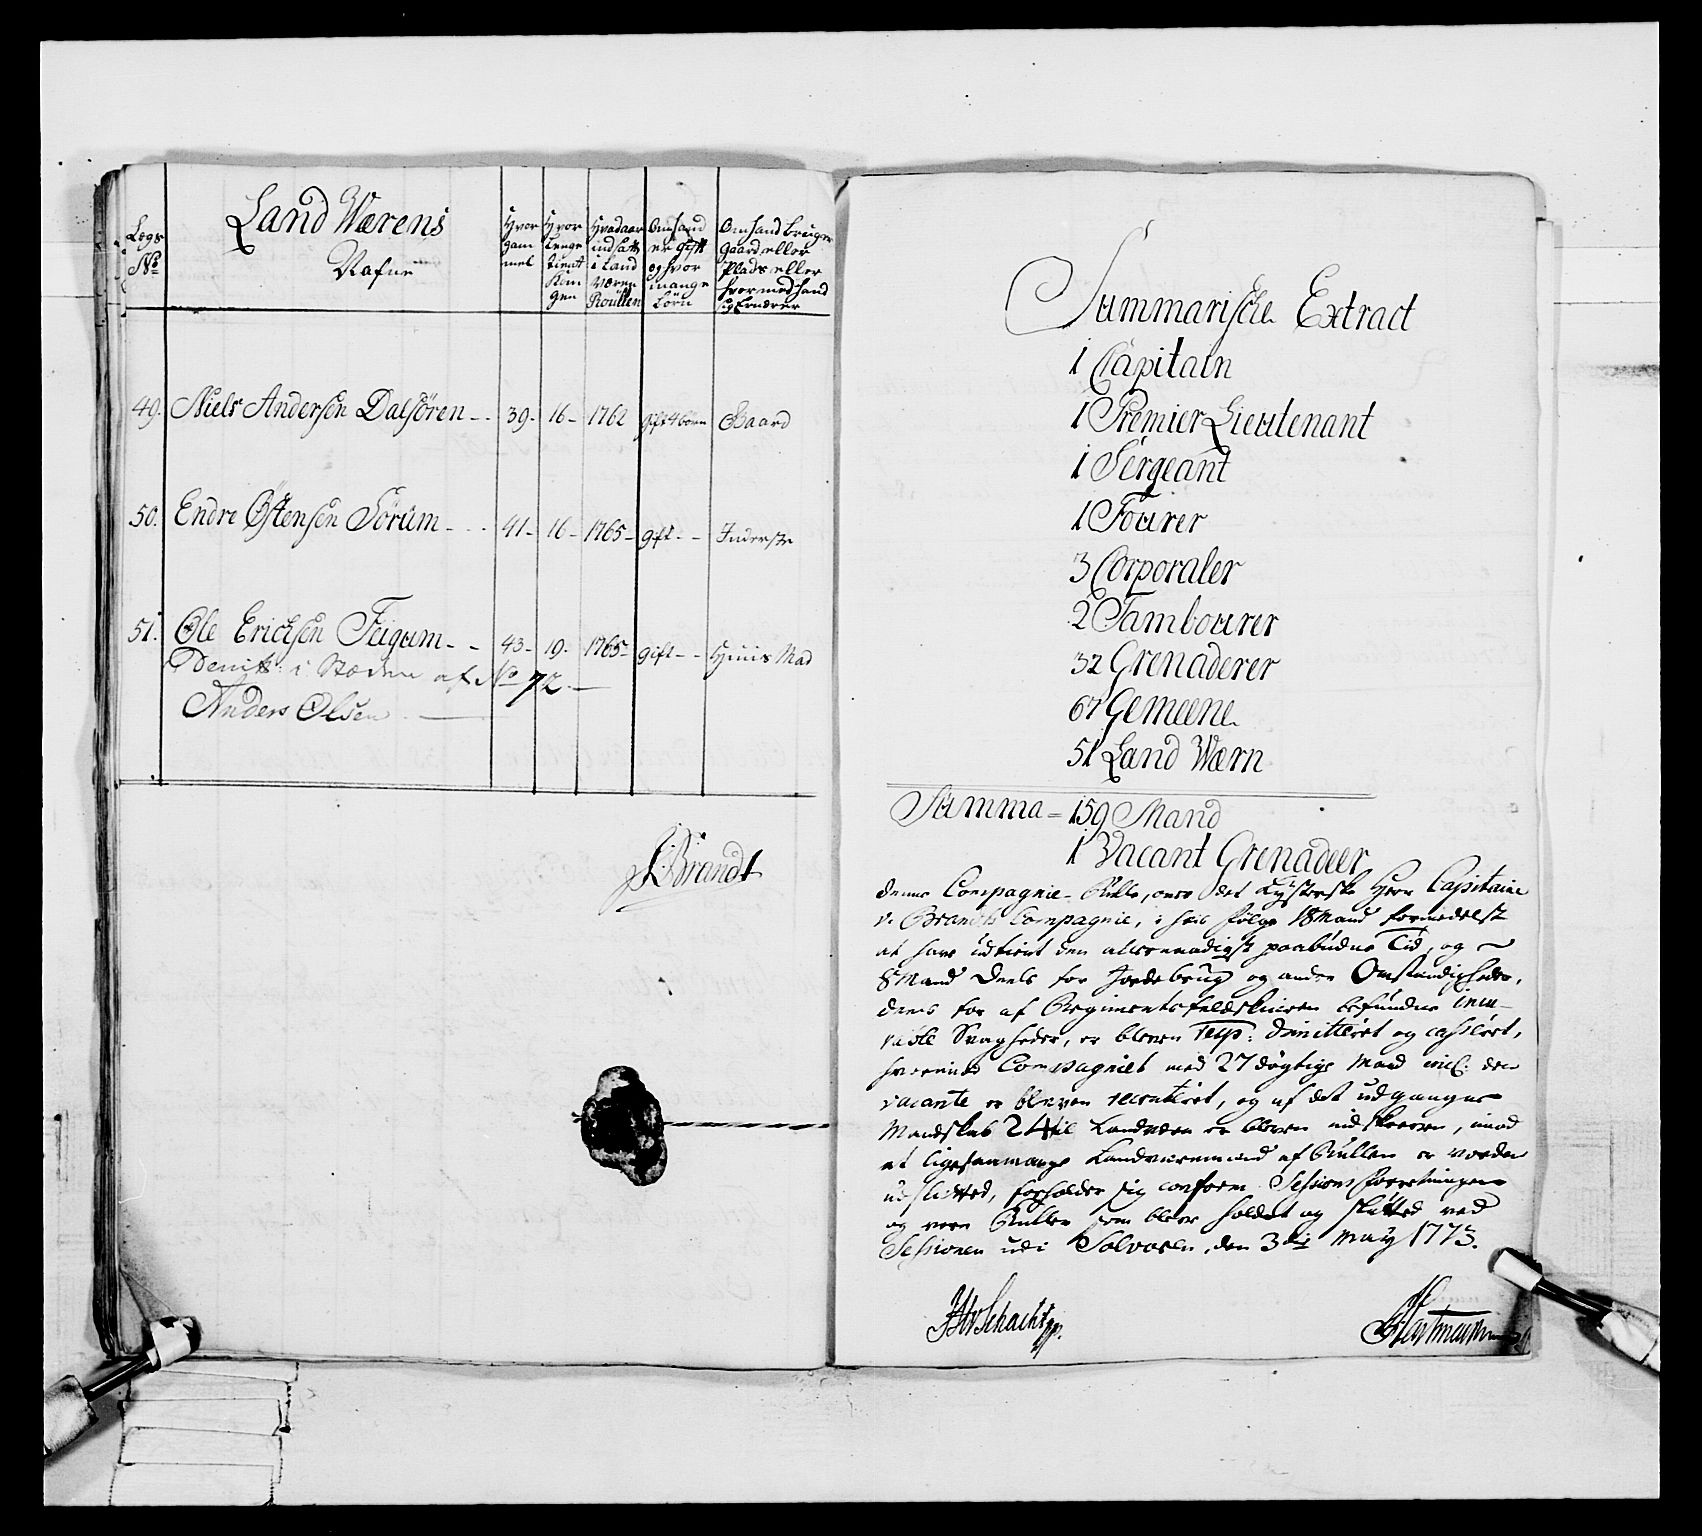 Lægs
No
Land Wærens
Nafne
Hvor
gam
mel
Hvor
Lenge
tient
Kon
gen
Hvad aar
indsatt
i Land
Væren
Roullen
Om hand
er gift
og hvor
mange
börn
Om hand bruger
Gaard eller
Plads eller
hvormed hand
sig Ernærer
49. Niels Andersen Dalsören - - 39 - 16 - 1762 gift 4 börn Gaard
50. Endre Östensen Sörum - - - 41 - 16 - 1765 - gift - - Inderste
51. Ole Erichsen Feigum - - 43 - 19 - 1765 - gift - - Huus Mand
i Stæden af No 72. —
Anders Olsen —
Brandt
Summarische Extract
1 Capitain
1 Premier Lieutenant
1 Sergeant
1 Fourer
3 Corporaler
2 Tambourer
32 Grenaderer
67 Gemeene
51 Land Wærn
Summa = 159 Mand
1 Vacant Grenadeer
denne Compagnie Rulle, over det Lysterske Herr Capitaine
v. Brandts Compagnie, i følge 18 Mand formedelst
at have udtient den allernaadigst paabudne Tid, og
8 Mand Deels for Jordebrug og andre Omstændigheder,
deels for af Regimentsfeldskieren befundne incu-
rable Svagheder, er bleven resp: dimitteret og casseret,
hvorimod Compagniet med 27 dygtige Mand incl: den
vacante er bleven recruteret, og af det udgangne
Mandskab 24 til Landværn er bleven indskreven, imod
at ligesaamange Landværnmænd af Rullen er vorden
udsletted, forholder sig conform Sessions forretningen
og vere Rullen som blev holdet og slutted ved
Sessionen udi Solvoren, den 3die May 1773.
Schacht
Hartmann